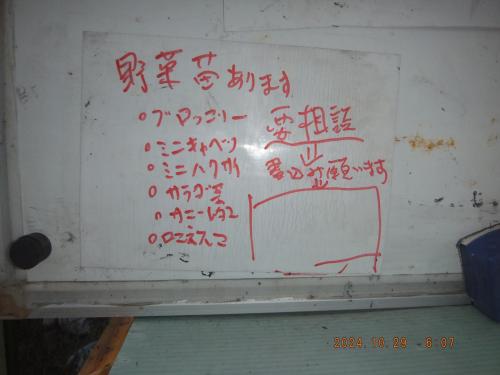 野菜苗あります
○ブロッコリー
○ミニキャベツ
○ミニハクサイ
○サニーレタス
要相談
書込お願います
2024.10.29 6:07